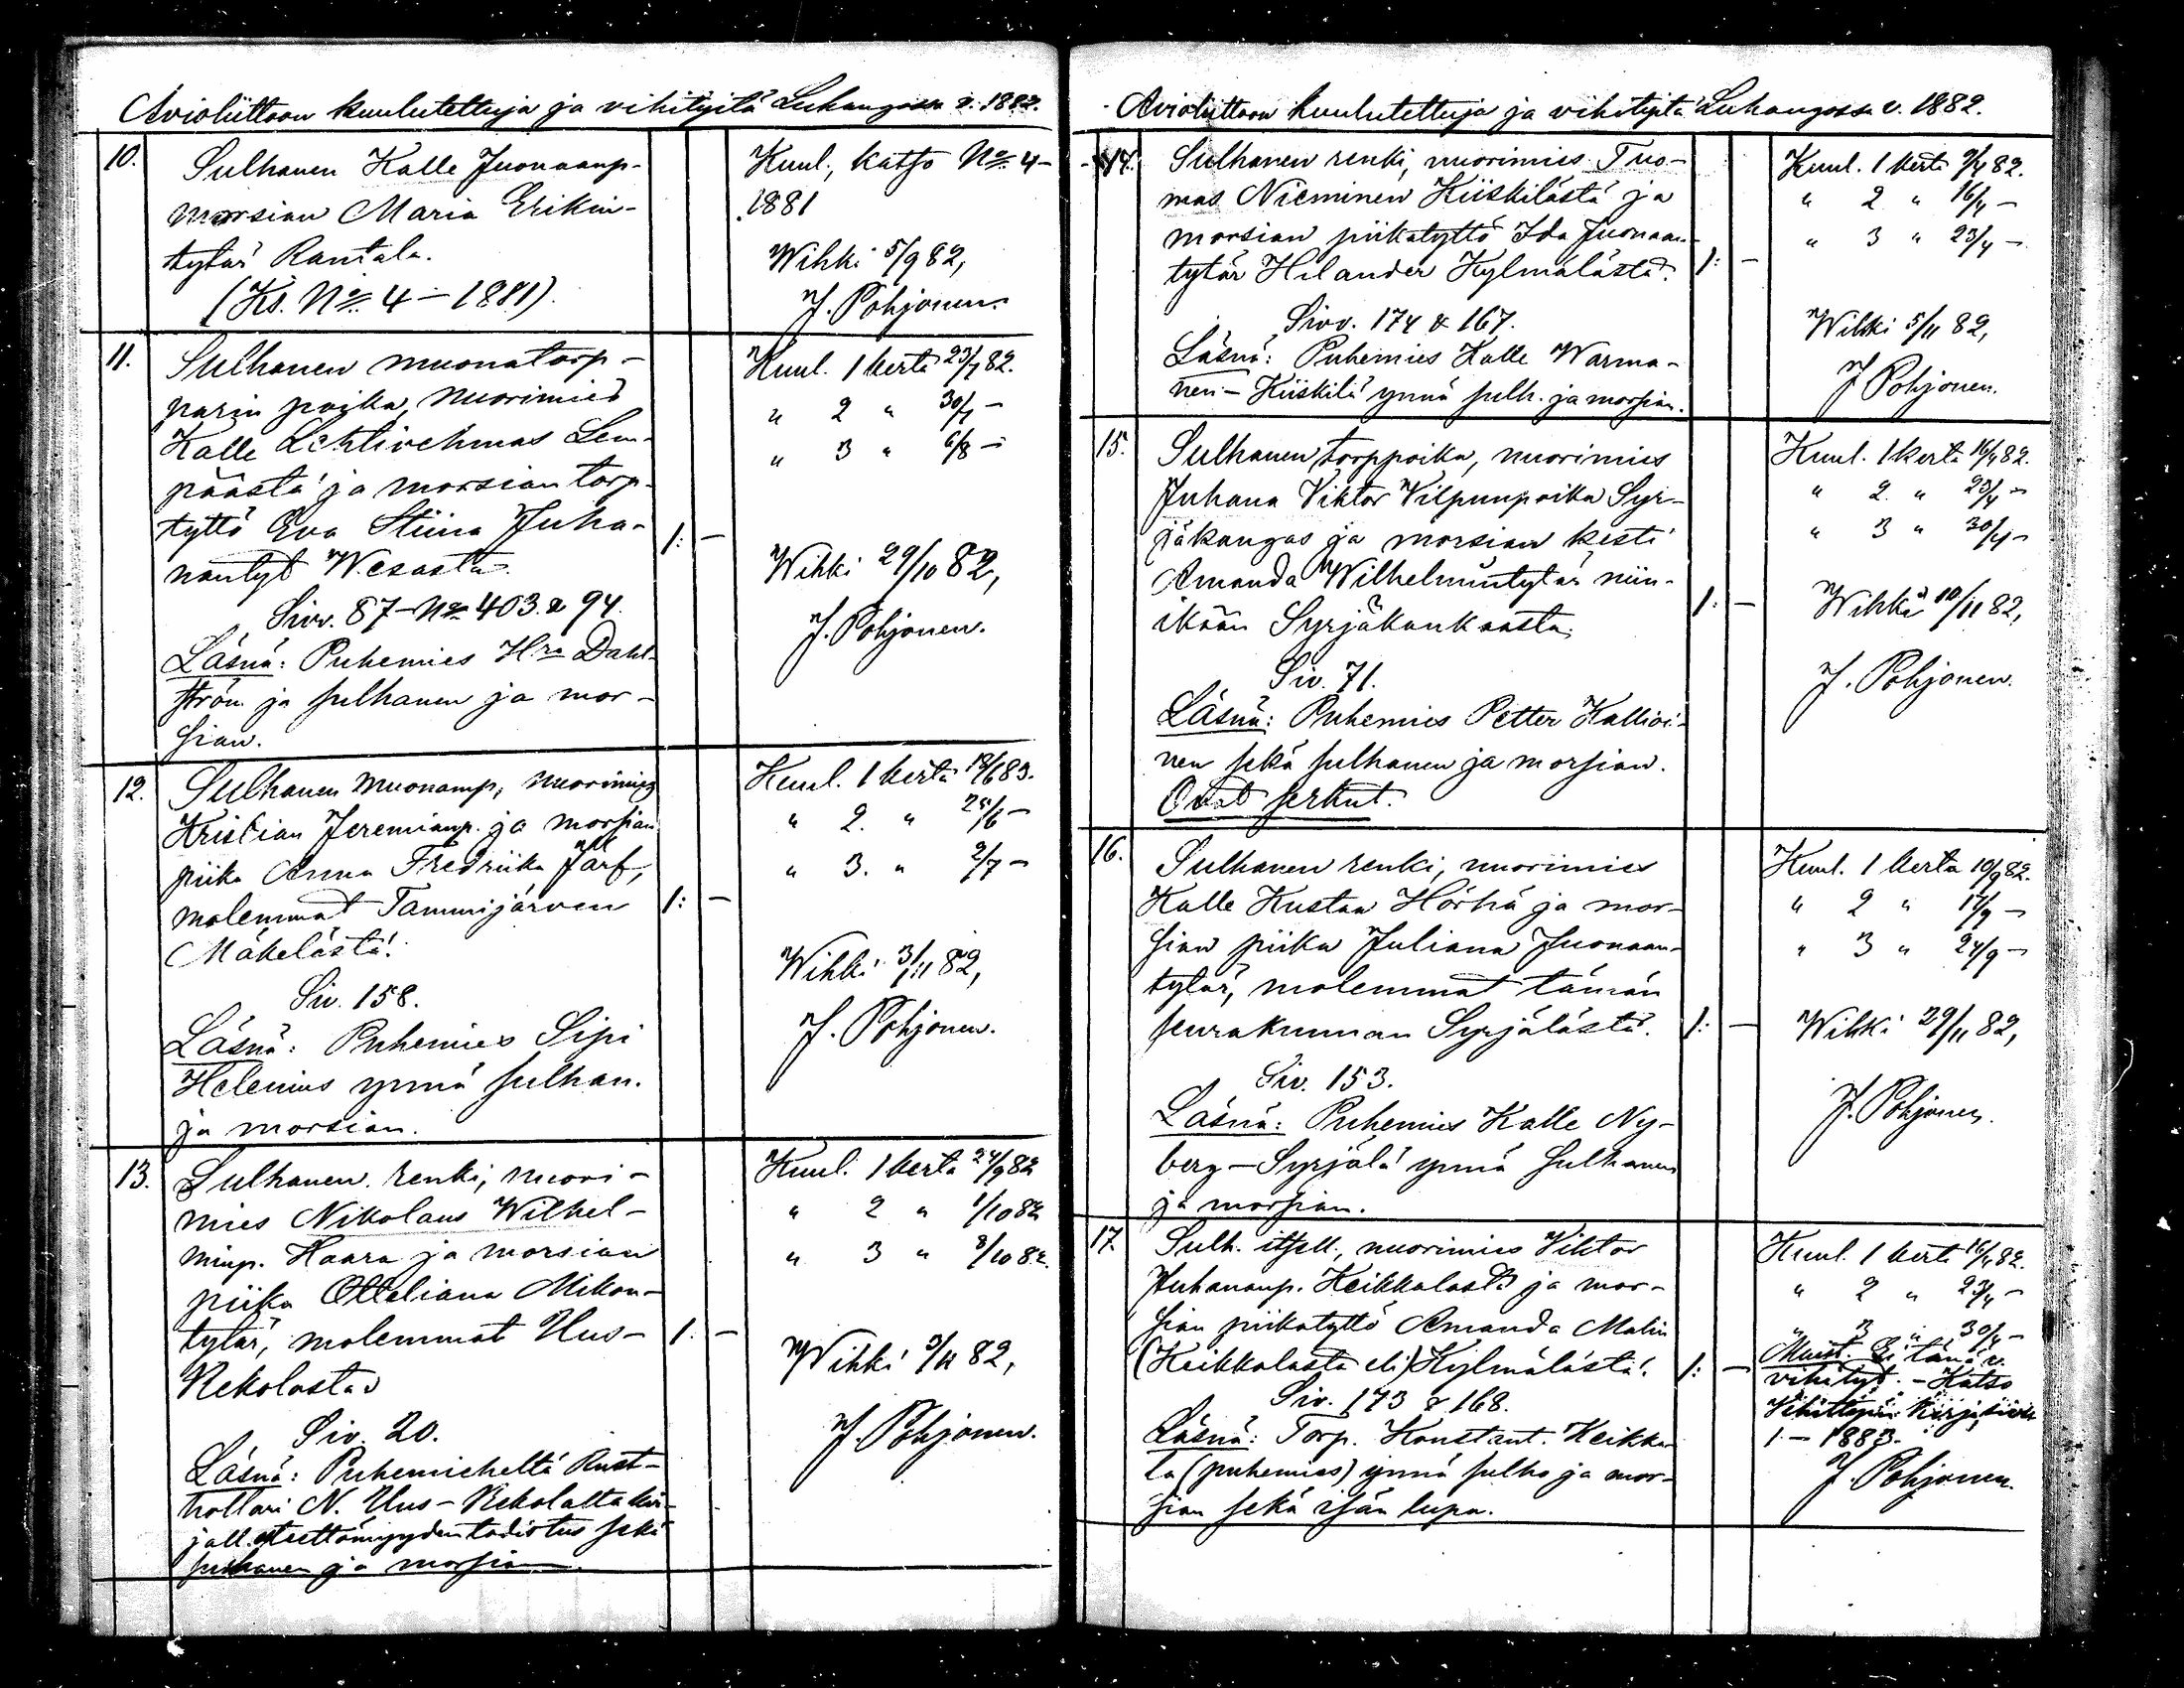 Avioliittoon kuulutettuja ja vihityitä Luhangossa v. 1882.
10.
Sulhanen Kalle Juonaanp-
morsian Maria Erikin-
tytär Rantala.
(Ks. No 4 – 1881).
Kuul., katso No 4 –
1881
Wihki 5/9 82,
J. Pohjonen.
11.
Sulhanen muonatorp-
parin poika, nuorimies
Kalle Lehtivehmas Lem-
päästä ja morsian torp-
tyttö Eva Stiina Juha-
nantyt Wesasta.
Sivv. 87 – No 403. & 94.
Läsnä: Puhemies Hra Dahl-
ström ja sulhanen ja mor-
sian.
1: –
Kuul. 1 kerta 23/7 82.
" 2 " 30/7 –
" 3 " 6/8 –
Wihki 29/10 82,
J. Pohjonen.
12.
Sulhanen muonamp, nuorimies
Kristian Jeremianp. ja morsian
piika Anna Fredriika Järf,
molemmat Tammijärven
Mäkelästä.
Siv. 158.
Läsnä: Puhemies Sipi
Helenius ynnä sulhan.
ja morsian.
1: –
Kuul. 1 kerta 18/6 83.
" 2. " 25/6 –
" 3. " 2/7 –
Wihki 3/11 82,
J. Pohjonen.
13.
Sulhanen renki, nuori-
mies Nikolaus Wilhel-
minp. Haara ja morsian
piika Otteliana Mikon-
tytär, molemmat Uus-
Rekolasta
Siv. 20.
Läsnä: Puhemieheltä Rust-
hollari N. Uus-Rekolalta kir-
jall. esteettömyyden todistus sekä
sulhanen ja morsian.
1: –
Kuul. 1 kerta 24/9 82
" 2 " 1/10 82
" 3 " 8/10 82.
Wihki 3/11 82,
J. Pohjonen.
Avioliittoon kuulutettuja ja vihityitä Luhangossa v. 1882.
14.
Sulhanen renki, nuorimies Tuo-
mas Nieminen Kiiskilästä ja
morsian piikatyttö Ida Juonaan-
tytär Helander Kylmälästä.
Sivv. 174 & 167.
Läsnä: Puhemies Kalle Warma-
nen – Kiiskilä ynnä sulh. ja morsian.
1: –
Kuul. 1 kerta 9/4 82.
" 2 " 16/4 –
" 3 " 23/4 –
Wihki 5/11 82,
J Pohjonen.
15.
Sulhanen torppoika, nuorimies
Juhana Viktor Vilpunpoika Syr-
jäkangas ja morsian kesti
Amanda Wilhelmiintytär niin-
ikään Syrjäkankaasta,
Siv. 71.
Läsnä: Puhemies Petter Kallioi-
nen sekä sulhanen ja morsian.
Ovat serkut.
1: –
Kuul. 1 kerta 16/4 82.
" 2. " 23/4 –
" 3 " 30/4 –
Wihki 10/11 82,
J. Pohjonen.
16.
Sulhanen renki, nuorimies
Kalle Kustaa Hörhä ja mor-
sian piika Juliana Juonaan-
tytär, molemmat tämän
seurakunnan Syrjälästä.
Siv. 153.
Läsnä: Puhemies Kalle Ny-
berg – Syrjälä ynnä sulhanen
ja morsian.
1: –
Kuul. 1 kerta 10/9 82.
" 2 " 17/9 –
" 3 " 24/9 –
Wihki 29/11 82,
J. Pohjonen.
17.
Sulh. itsell., nuorimies Viktor
Juhananp. Keikkalasta ja mor-
sian piikatyttö Amanda Malin
(Keikkalasta eli) Kylmälästä.
Siv. 173 & 168.
Läsnä: Torp. Konstant. Keikka-
la (puhemies) ynnä sulho ja mor-
sian sekä isän lupa.
1: –
Kuul. 1 kerta 16/4 82.
" 2 " 23/4 –
" 3 " 30/4 –
Muist. Ei tänä v.
vihityt. – Katso
Vihittyjen kirja siv.
1. – 1883.
J. Pohjonen.